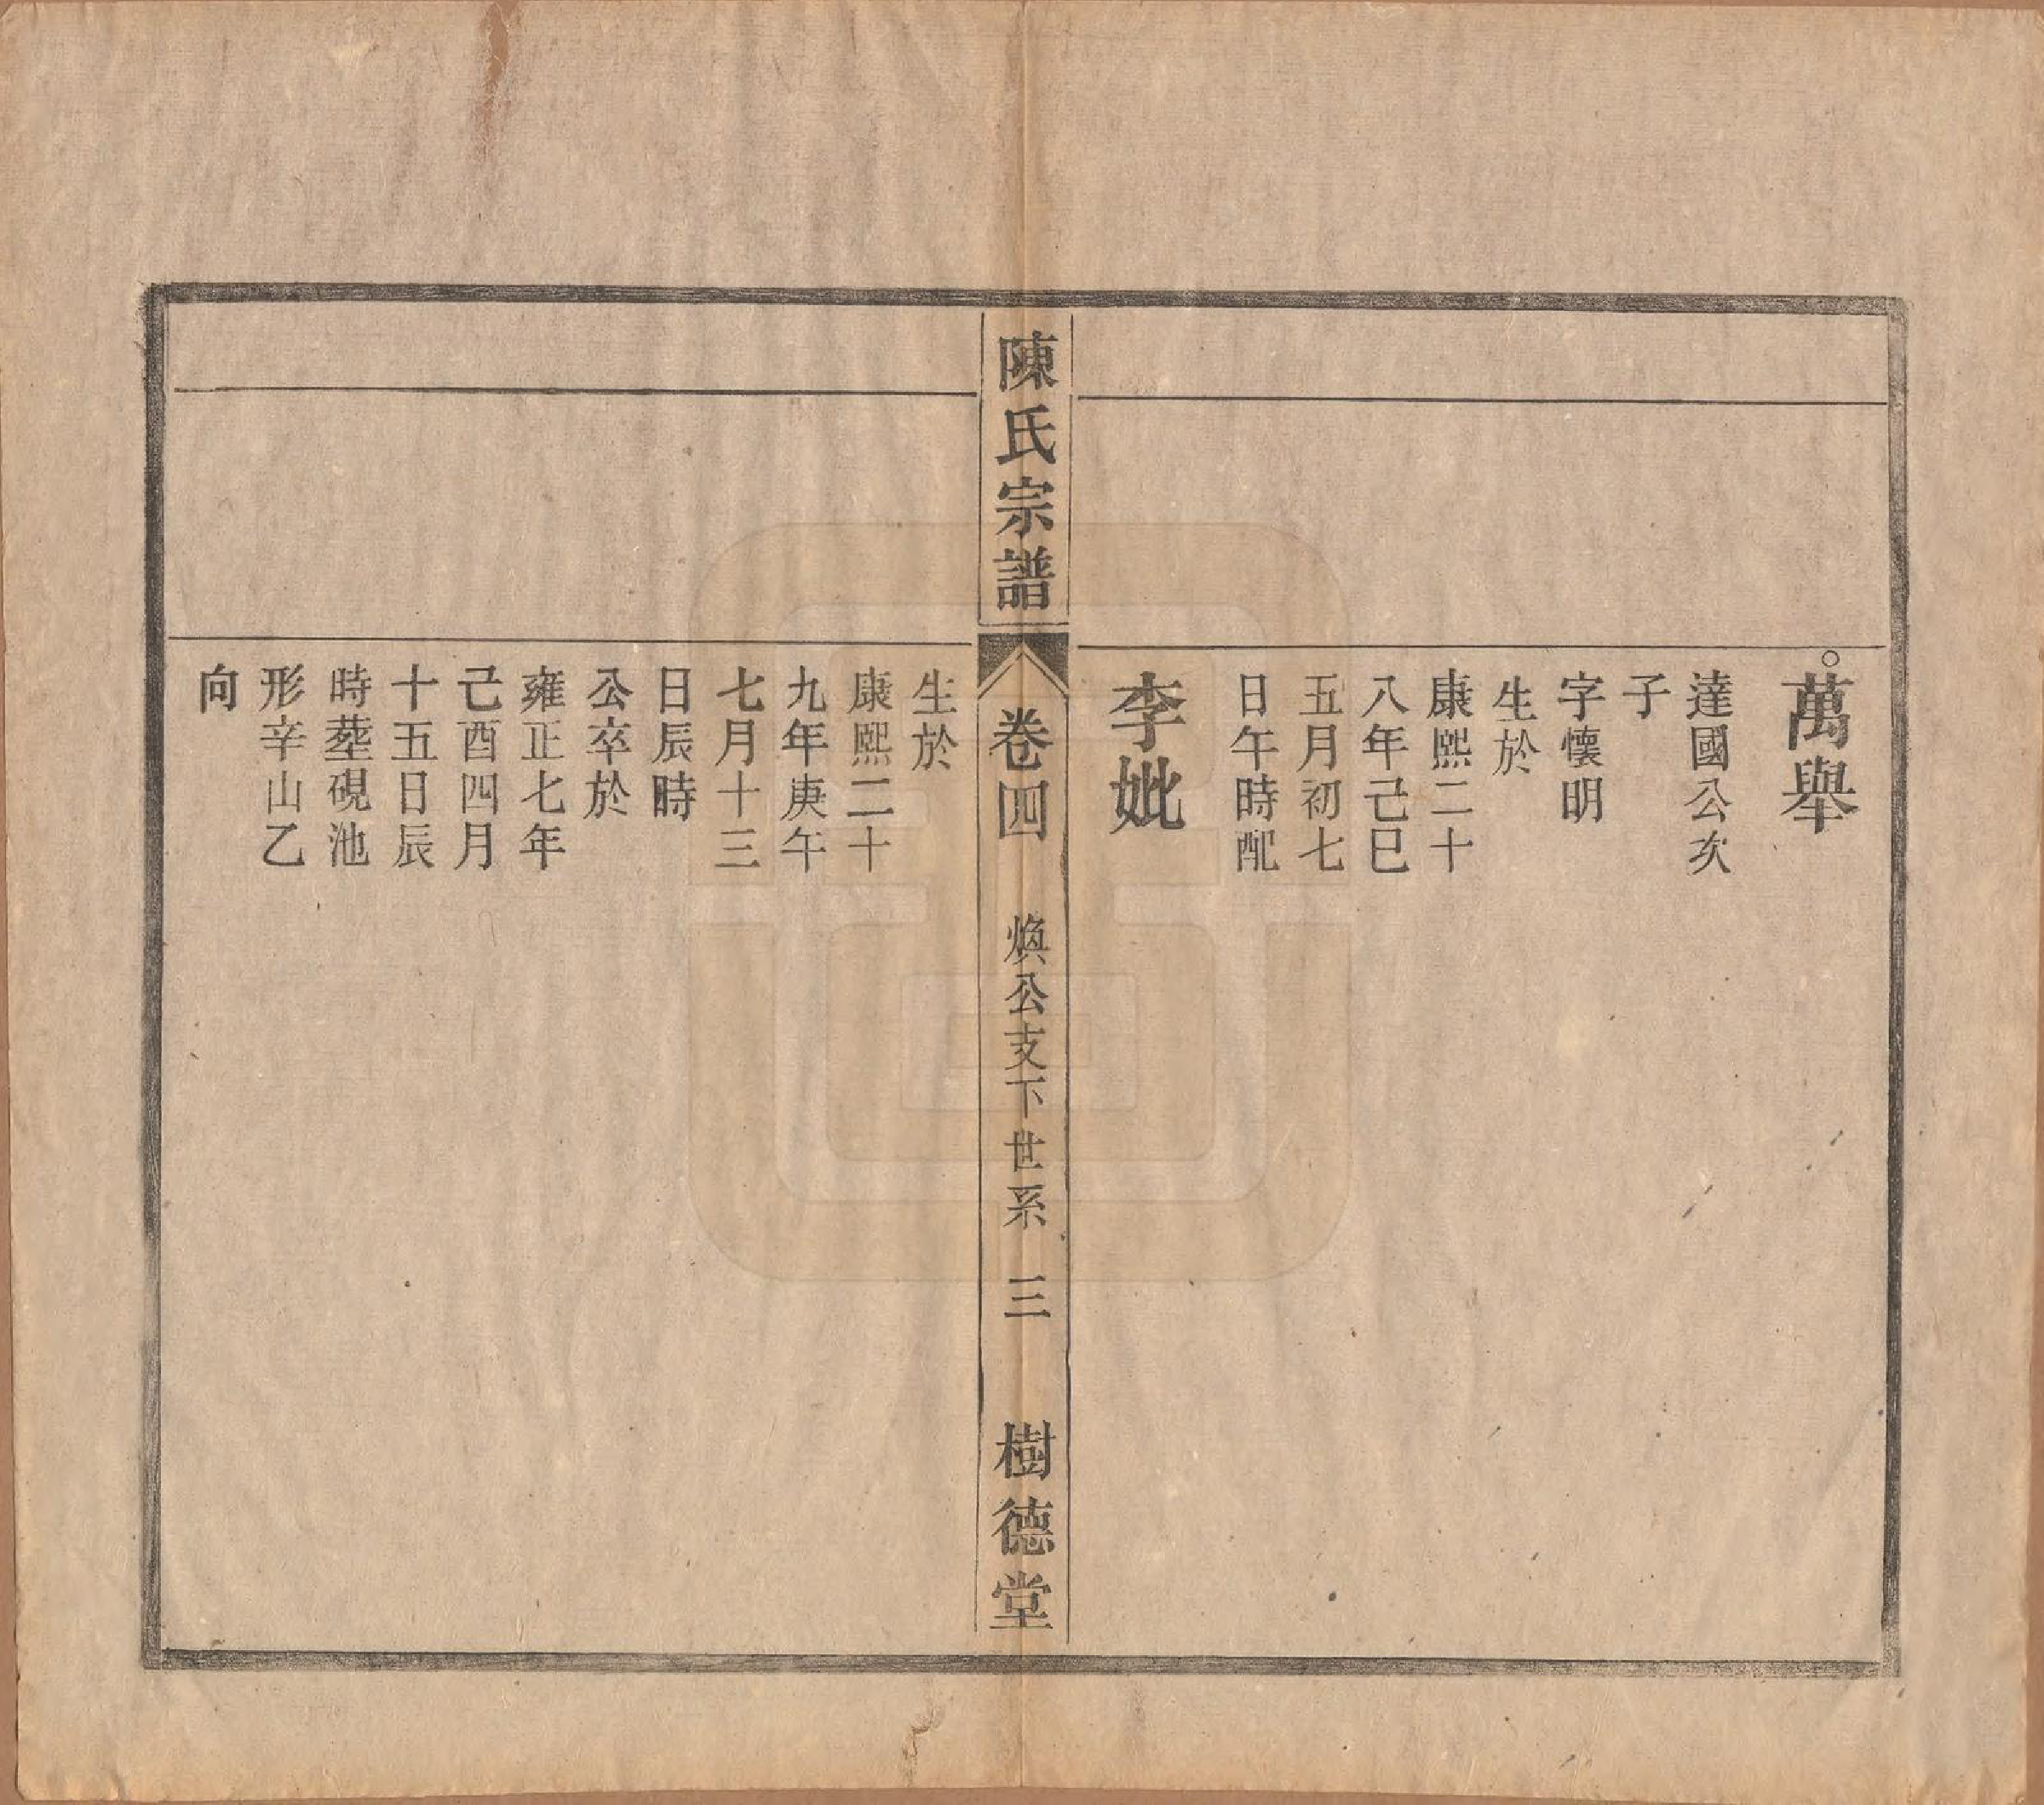 萬舉
達國公次
子
字懷明
生於
康熙二十
八年己巳
五月初七
日午時配
李妣
陳氏宗譜
卷四
煥公支下世系
三
樹德堂
生於
康熙二十
九年庚午
七月十三
日辰時
公卒於
雍正七年
己酉四月
十五日辰
時塟硯池
形辛山乙
向